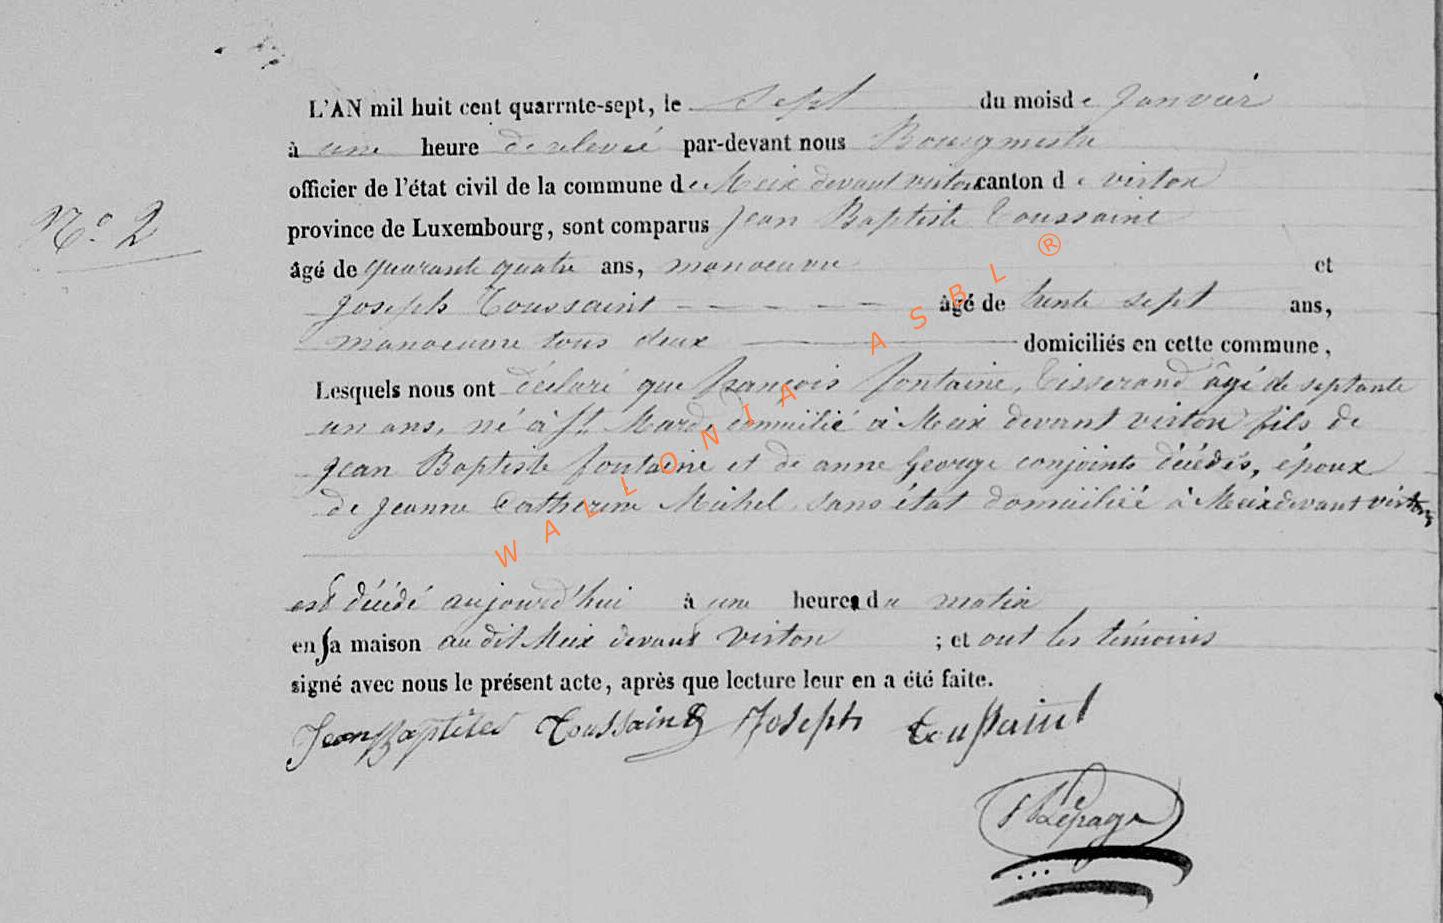 L'AN mil huit cent quarrnte-sept, le sept du moisde Janvier
à une heure de relevée par-devant nous Bourgmestre
officier de l'état civil de la commune de Meix devant virton canton de virton
N.º 2
province de Luxembourg, sont comparus Jean Baptiste Toussaint
âgé de quarante quatre ans, manoeuvre et
Joseph Toussaint âgé de trente sept ans,
manoeuvre tous deux domiciliés en cette commune,
Lesquels nous ont déclaré que françois fontaine, Tisserand âgé de septante
un ans, né à St. Mard, domicilié à Meix devant virton fils de
Jean Baptiste fontaine et de anne George conjoints décédés, époux
de Jeanne Catherine Michel sans état domiciliée à Meix devant virton
est décédé aujourd'hui à une heure du matin
en sa maison au dit Meix devant Virton ; et ont les témoins
signé avec nous le présent acte, après que lecture leur en a été faite.
Jean Baptiste Toussaint Joseph Toussaint
Lepage
WALLONIA ASBL ®